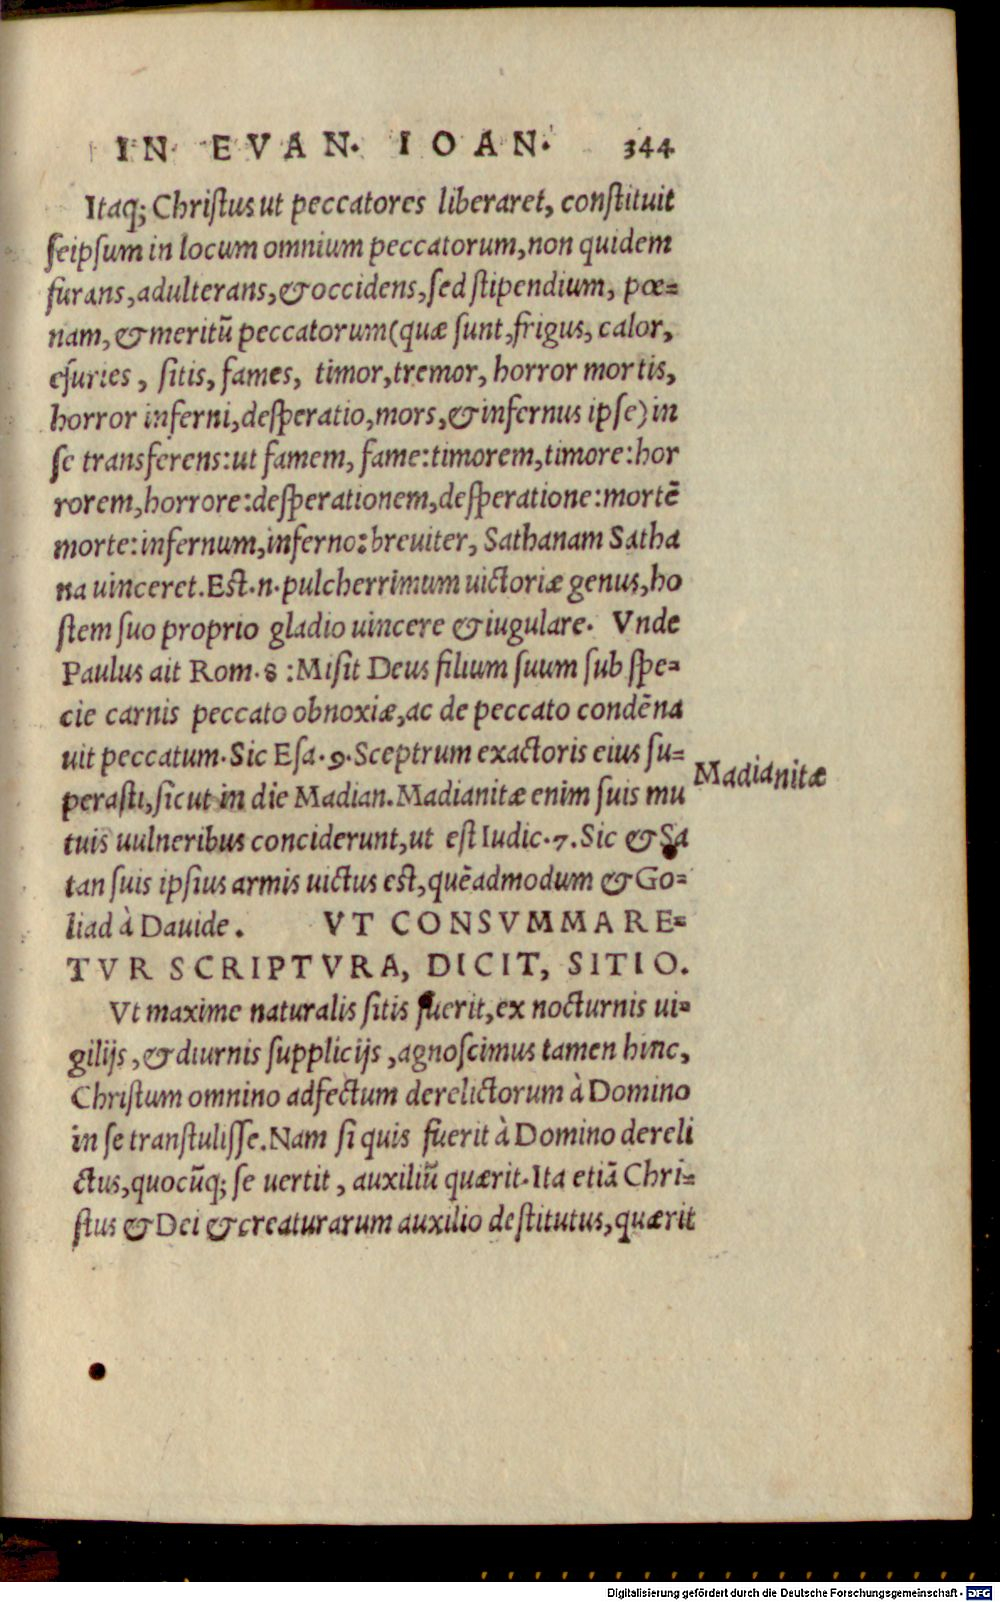 IN EVAN. IOAN. 344
Itaq; Chriſtus ut peccatores liberaret, conſtituit
ſeipſum in locum omnium peccatorum, non quidem
furans, adulterans, & occidens, ſed ſtipendium, pœ=
nam, & meritū peccatorum (quæ ſunt, frigus, calor,
eſuries, ſitis, fames, timor, tremor, horror mortis,
horror inferni, deſperatio, mors, & infernus ipſe) in
ſe transferens: ut famem, fame: timorem, timore: hor
rorem, horrore: deſperationem, deſperatione: mortē
morte: infernum, inferno: breuiter, Sathanam Satha
na uinceret. Eſt .n. pulcherrimum uictoriæ genus, ho
ſtem ſuo proprio gladio uincere & iugulare. Vnde
Paulus ait Rom. 8: Miſit Deus filium ſuum ſub ſpe=
cie carnis peccato obnoxiæ, ac de peccato condēna
uit peccatum. Sic Eſa. 9. Sceptrum exactoris eius ſu=
peraſti, ſicut in die Madian. Madianitæ enim ſuis mu
Madianitæ
tuis uulneribus conciderunt, ut eſt Iudic. 7. Sic & Sa
tan ſuis ipſius armis uictus eſt, quēadmodum & Go=
liad à Dauide. VT CONSVMMARE=
TVR SCRIPTVRA, DICIT, SITIO.
Vt maxime naturalis ſitis fuerit, ex nocturnis ui=
gilijs, & diurnis ſupplicijs, agnoſcimus tamen hinc,
Chriſtum omnino adfectum derelictorum à Domino
in ſe tranſtuliſſe. Nam ſi quis fuerit à Domino dereli
ctus, quocūq; ſe uertit, auxiliū quærit. Ita etiā Chri=
ſtus & Dei & creaturarum auxilio deſtitutus, quærit
Digitalisierung gefördert durch die Deutsche Forschungsgemeinschaft - DFG